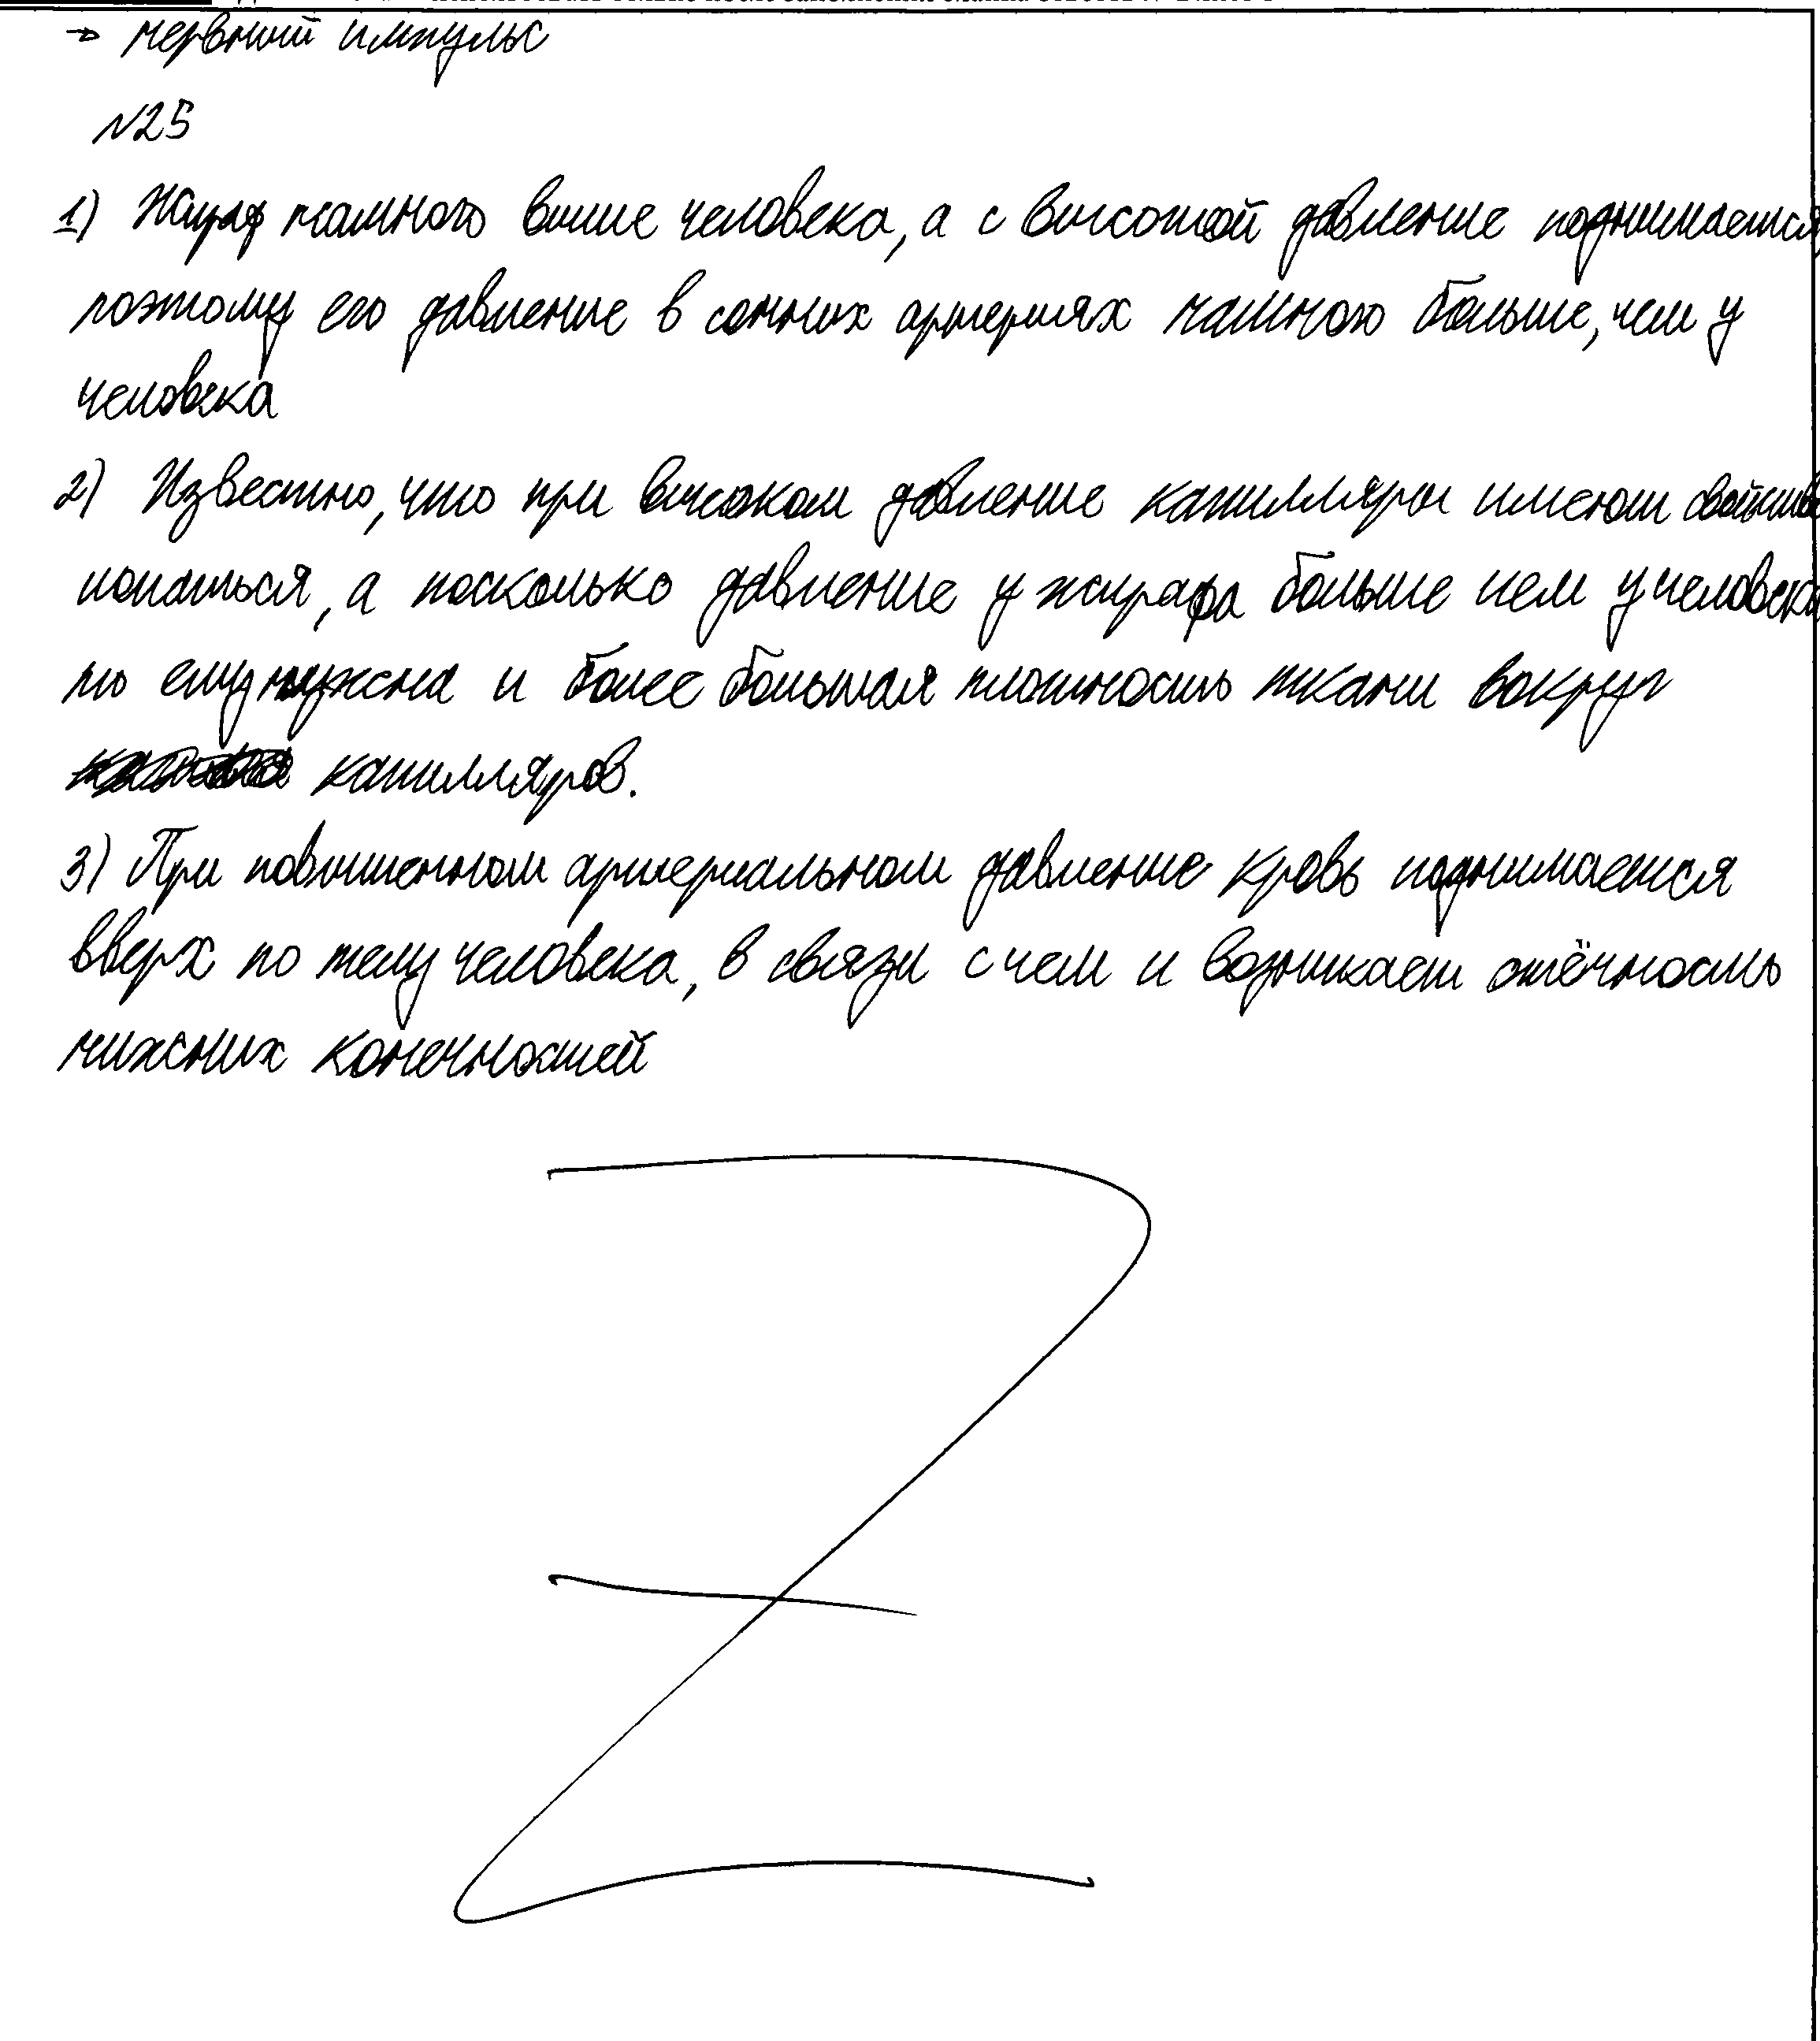 → нервный импульс
№25
1) Жираф намного выше человека, а с высотой давление поднимается,
поэтому его давление в сонных артериях намного больше, чем у
человека
2) Известно, что при высоком давление капилляры имеют свойство
лопаться, а поскольку давление у жирафа больше чем у человека
то ему нужна и более большая плотность ткани вокруг
капилляров.
3) При повышенном артериальном давление кровь поднимается
вверх по телу человека, в связи с чем и возникает отёчность
нижних конечностей